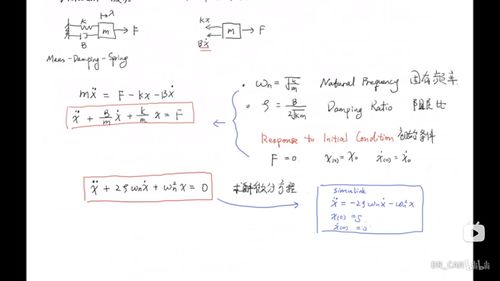 k
m
F
B
x
kx
Bẋ
m
F
Mass-Damping-Spring
mẍ = F - kx - Bẋ
ẍ + B/m ẋ + k/m x = F
ωn = √(k/m) Natural Frequency 固有频率
ζ = B/(2√(km)) Damping Ratio 阻尼比
Response to Initial Condition 初始条件
F = 0 x(0) = x₀ ẋ(0) = ẋ₀
ẍ + 2ζωnẋ + ωn²x = 0 求解微分方程
simulink
ẍ = -2ζωnẋ - ωn²x
x(0) = 5
ẋ(0) = 0
DR_CAN
bilibili